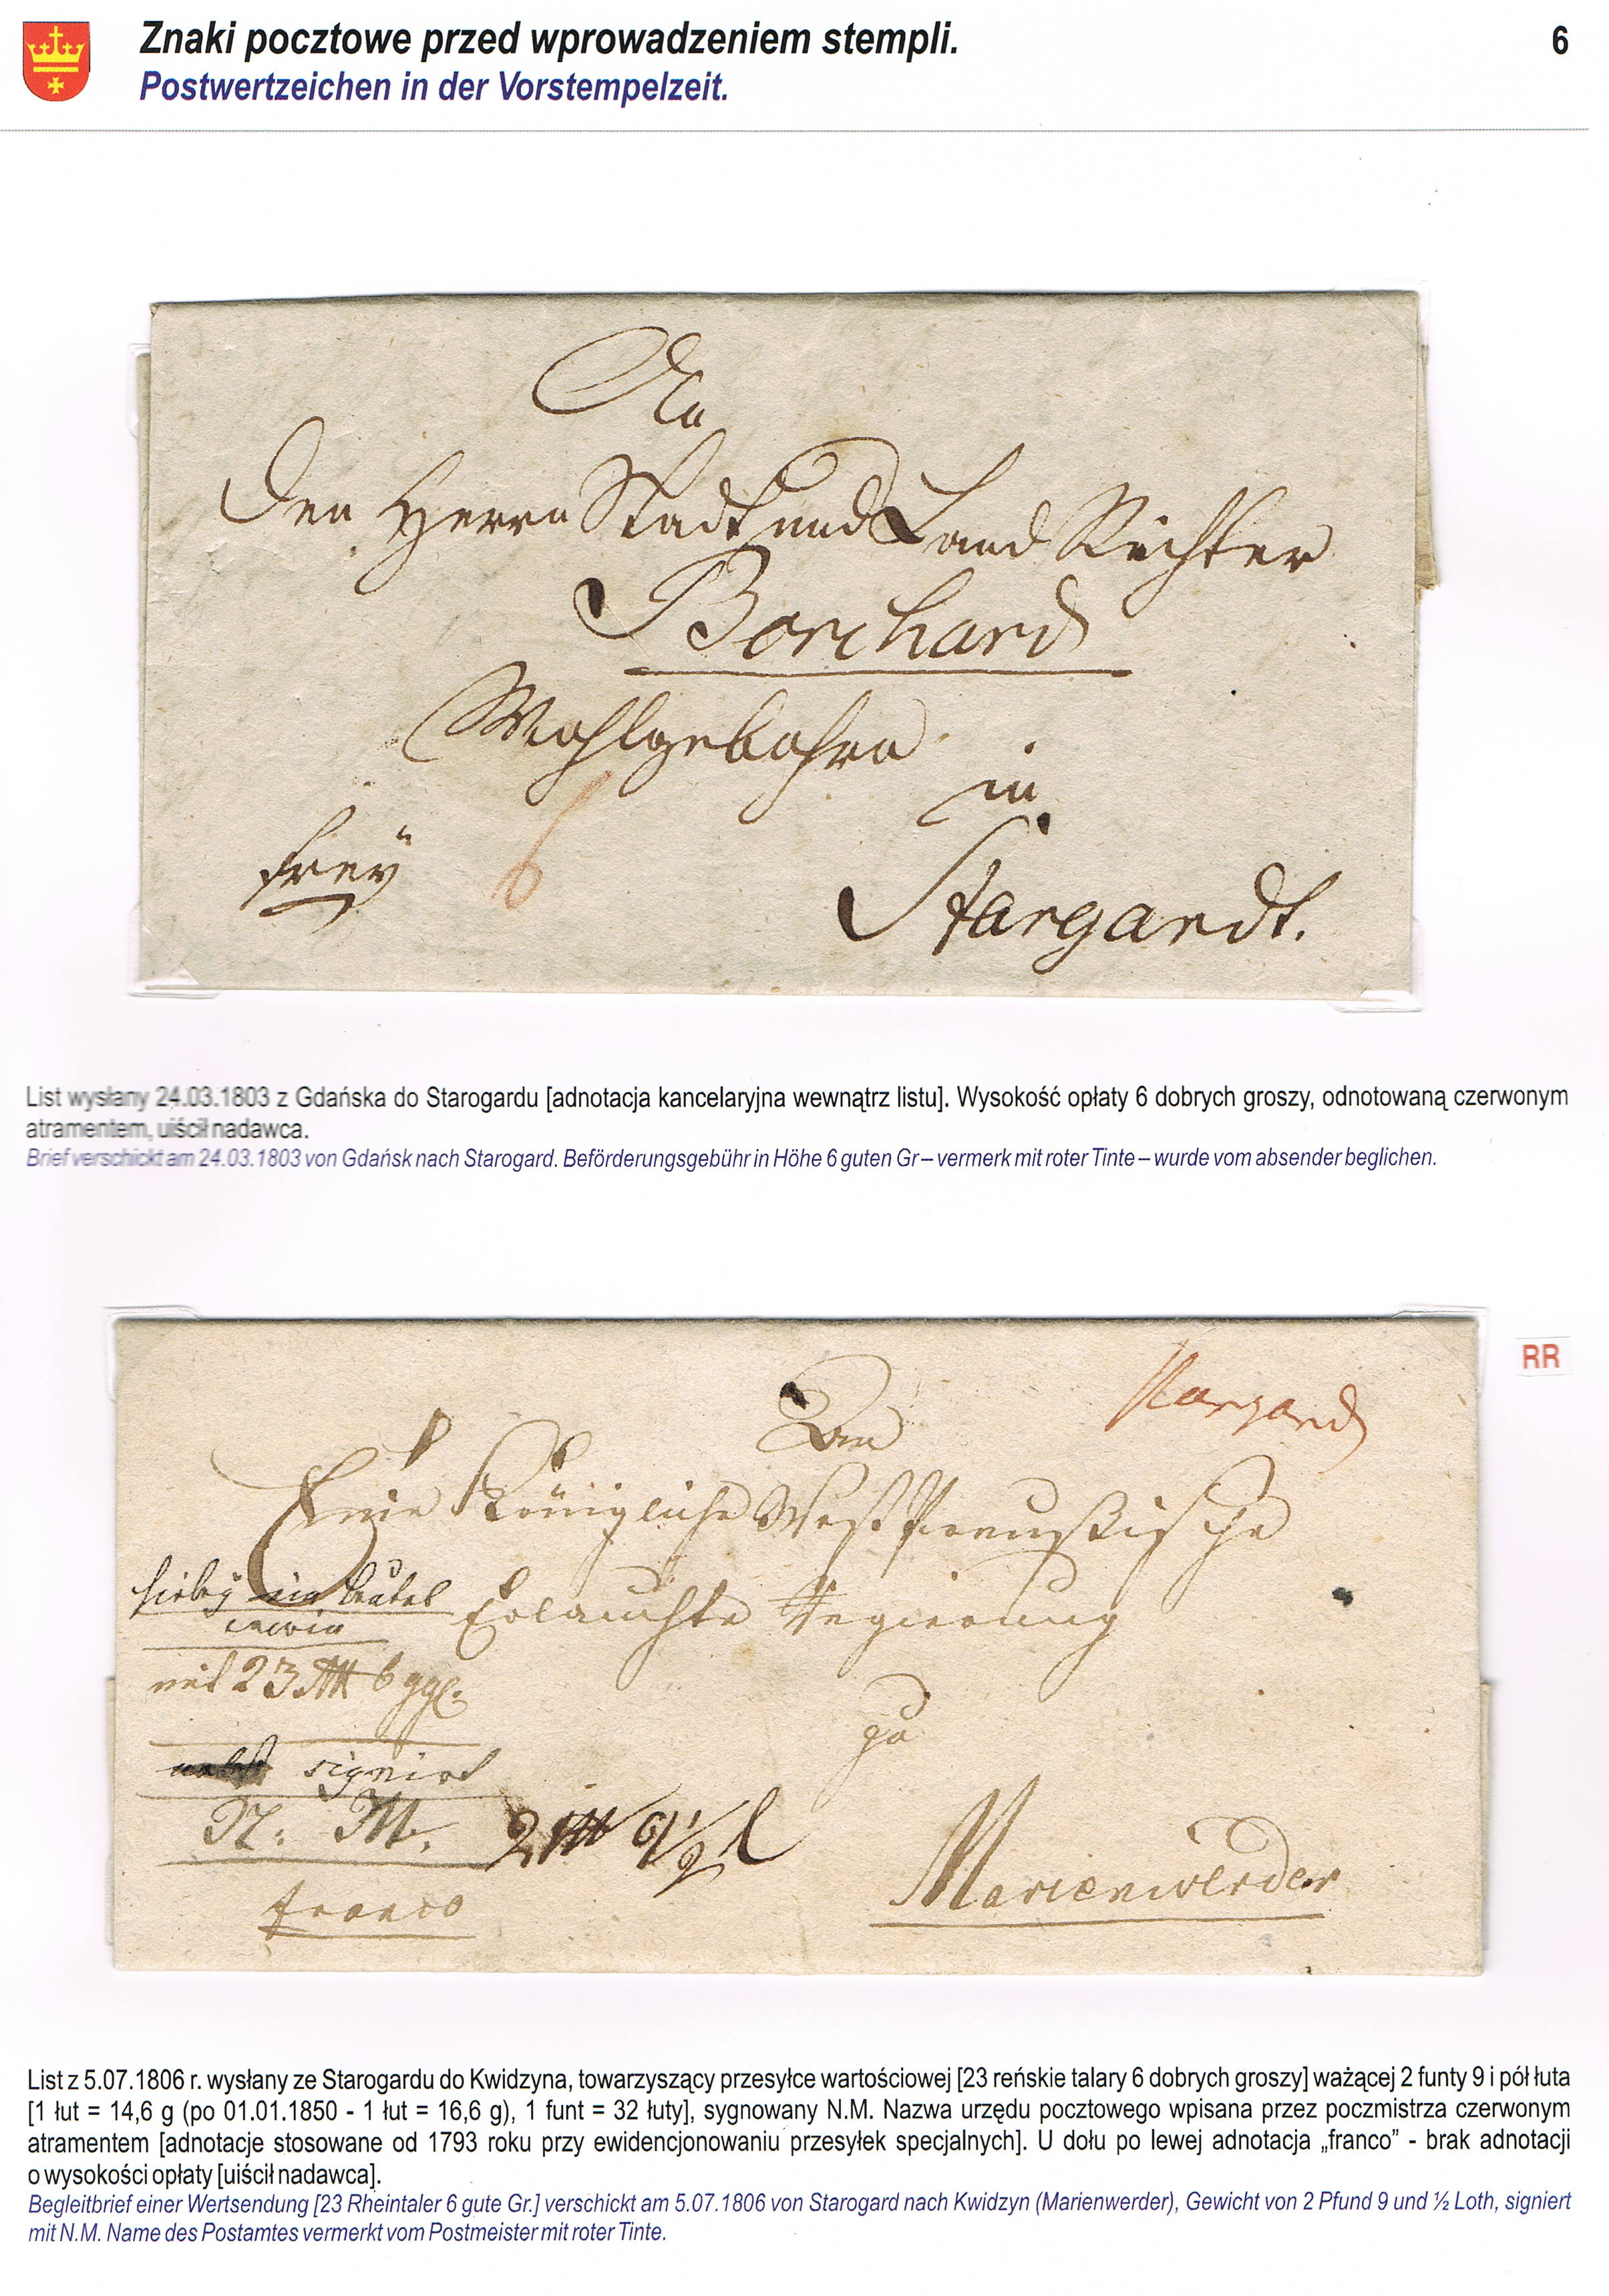 Znaki pocztowe przed wprowadzeniem stempli.
6
Postwertzeichen in der Vorstempelzeit.
An
Den Herrn Stadt und Land Richter
Borchard
Wohlgebohrn
in
frey
6
Stargardt.
List wysłany 24.03.1803 z Gdańska do Starogardu [adnotacja kancelaryjna wewnątrz listu]. Wysokość opłaty 6 dobrych groszy, odnotowaną czerwonym
atramentem, uiścił nadawca.
Brief verschickt am 24.03.1803 von Gdańsk nach Starogard. Beförderungsgebühr in Höhe 6 guten Gr – vermerk mit roter Tinte – wurde vom absender beglichen.
RR
Stargard
An
Eine Königliche West Preußische
hiebey ein beutel
Erlauchte Regierung
mit 23 6 ggl.
zu
signirt
N: M.
2 9½ l
Marienwerder
franco
List z 5.07.1806 r. wysłany ze Starogardu do Kwidzyna, towarzyszący przesyłce wartościowej [23 reńskie talary 6 dobrych groszy] ważącej 2 funty 9 i pół łuta
[1 łut = 14,6 g (po 01.01.1850 - 1 łut = 16,6 g), 1 funt = 32 łuty], sygnowany N.M. Nazwa urzędu pocztowego wpisana przez poczmistrza czerwonym
atramentem [adnotacje stosowane od 1793 roku przy ewidencjonowaniu przesyłek specjalnych]. U dołu po lewej adnotacja „franco” - brak adnotacji
o wysokości opłaty [uiścił nadawca].
Begleitbrief einer Wertsendung [23 Rheintaler 6 gute Gr.] verschickt am 5.07.1806 von Starogard nach Kwidzyn (Marienwerder), Gewicht von 2 Pfund 9 und ½ Loth, signiert
mit N.M. Name des Postamtes vermerkt vom Postmeister mit roter Tinte.